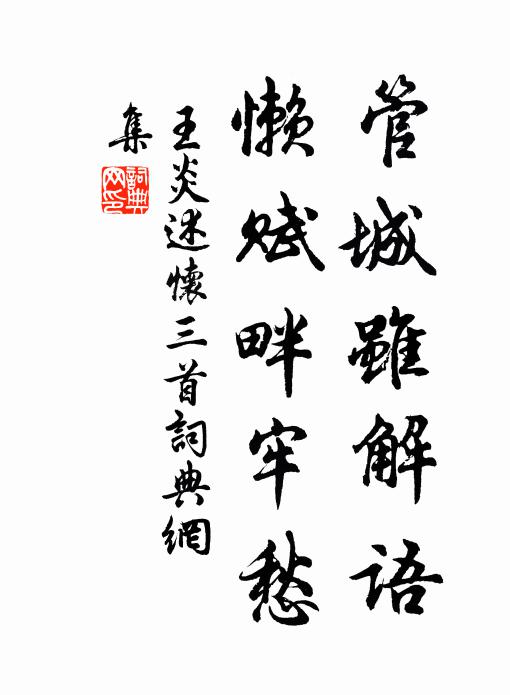 管城雖解語
懶賦畔牢愁
王炎述懷三首詞典網
集
詞典
网印